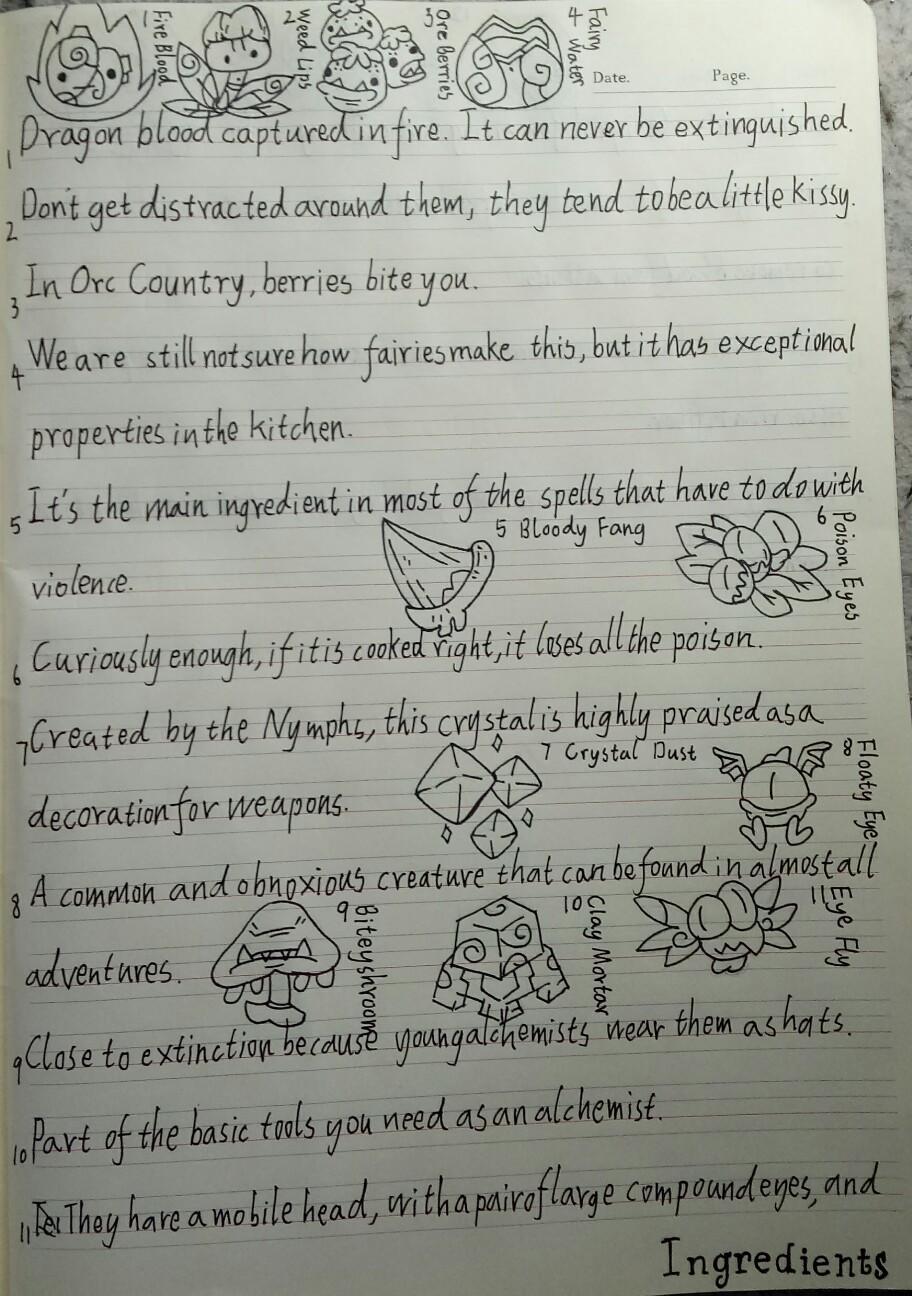 1 Fire Blood
2 Weed Lips
3 Ore Berries
4 Fairy Water
Date.
Page.
1 Dragon blood captured in fire. It can never be extinguished.
2 Don't get distracted around them, they tend to be a little kissy.
3 In Orc Country, berries bite you.
4 We are still not sure how fairies make this, but it has exceptional
properties in the kitchen.
5 It's the main ingredient in most of the spells that have to do with
5 Bloody Fang
6 Poison Eyes
violence.
6 Curiously enough, if it is cooked right, it loses all the poison.
7 Created by the Nymphs, this crystal is highly praised as a
7 Crystal Dust
8 Floaty Eye
decoration for weapons.
8 A common and obnoxious creature that can be found in almost all
9 Biteyshroom
10 Clay Mortar
11 Eye Fly
adventures.
9 Close to extinction because young alchemists wear them as hats.
10 Part of the basic tools you need as an alchemist.
11 They have a mobile head, with a pair of large compound eyes, and
Ingredients